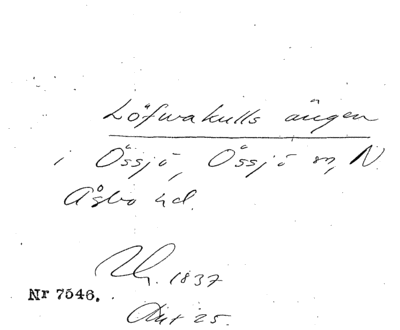 Löfvrakulls ängen
i Össjö, Össjö sn, N.
Åsbo hd.
Uh. 1837
Nr 7546.
Akt 25.